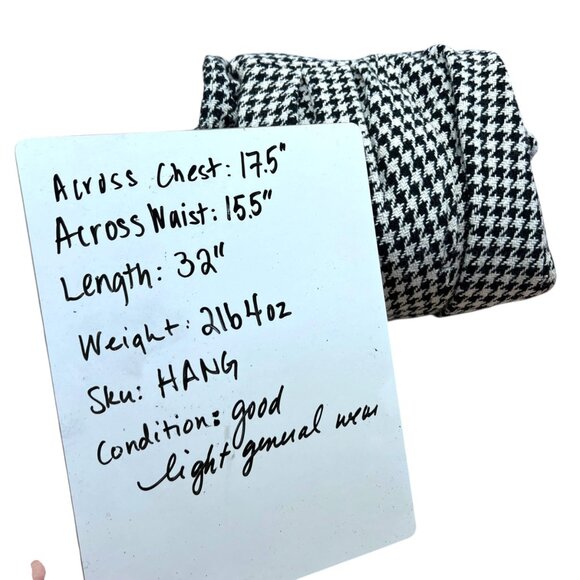 Across Chest: 17.5"
Across Waist: 15.5"
Length: 32"
Weight: 2lb 4oz
Sku: HANG
Condition: good
light general wear